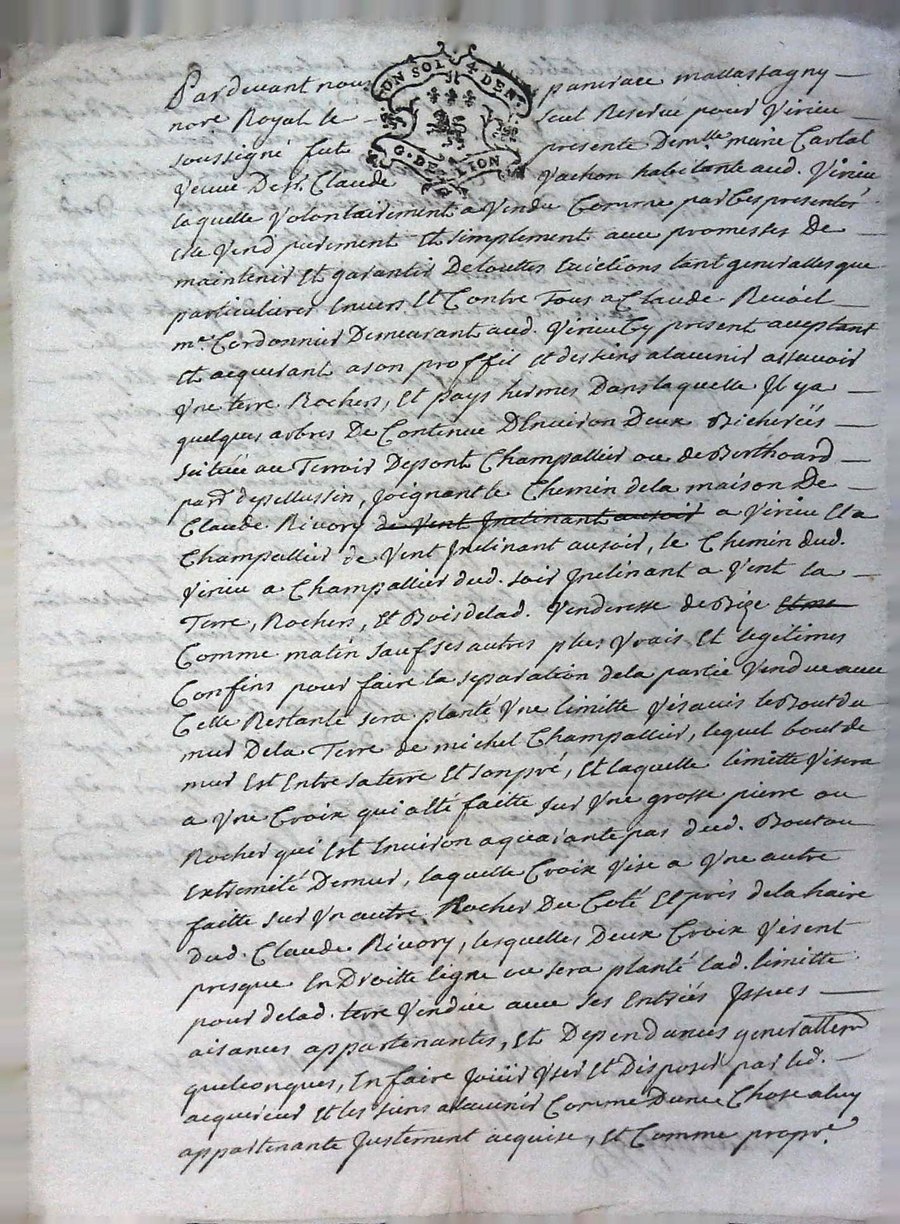 Pardevant nous pancrace mallassagny
UN SOL 4 DEN.
G. DE LION
nore. Royal le seul Reservé pour Virieu
soussigné fute presente Demlle. marie Carlat
Veuve De sr. Claude Vachon habitante aud. Virieu
laquelle Volontairement a Vendu Comme par Ces presentes
elle Vend purement Et simplement avec promesses De
maintenir Et garantir De toutes Evictions tant generalles que
particulieres Envers Et Contre Tous a Claude Revoël
me. Cordonnier Demeurant aud. Virieu Cy present acceptant
Et acquerant a son proffit Et des siens a lavenir assavoir
Vne terre Rochers, Et pays hermes Dans laquelle Il y a
quelques arbres De Contenue DEnviron Deux Bicherées
scituée au Terroir De pont Champallier ou de Berthoard
parr. de pellussin, Joignant le Chemin de la maison De
Claude Rivory de Vent Inclinant au soir a Virieu Et a
Champallier de Vent Inclinant au soir, le Chemin dud.
Virieu a Champallier dud. soir Inclinant a Vent la
Terre, Rochers, Et Bois de lad. Venderesse de Bize Et me
Comme matin sauf ses autres plus Vrais Et legitimes
Confins pour faire la separation de la partie Vendue avec
Celle Restante sera planté Vne limitte Visavis le Bout du
mur De la Terre de michel Champallier, lequel bout de
mur Est Entre sa terre Et son pré, Et laquelle limitte Visera
a Vne Croix qui a été faitte sur Vne grosse pierre ou
Rocher qui Est Environ a quarante pas dud. Bout ou
Extremité De mur, laquelle Croix Vise a Vne autre
faitte sur Vn autre Rocher Du Coté Et près de la haire
Dud. Claude Rivory, lesquelles Deux Croix Visent
presque En Droitte ligne ou sera planté lad. limitte
pour de lad. terre Vendue avec ses Entrées Issues
aisances appartenantes, Et Dependances generallemt
quelconques, En faire Joüir Vser Et Disposer par led.
acquereur Et les siens a lavenir Comme Dune Chose a luy
appartenante Justement acquise, Et Comme propre.